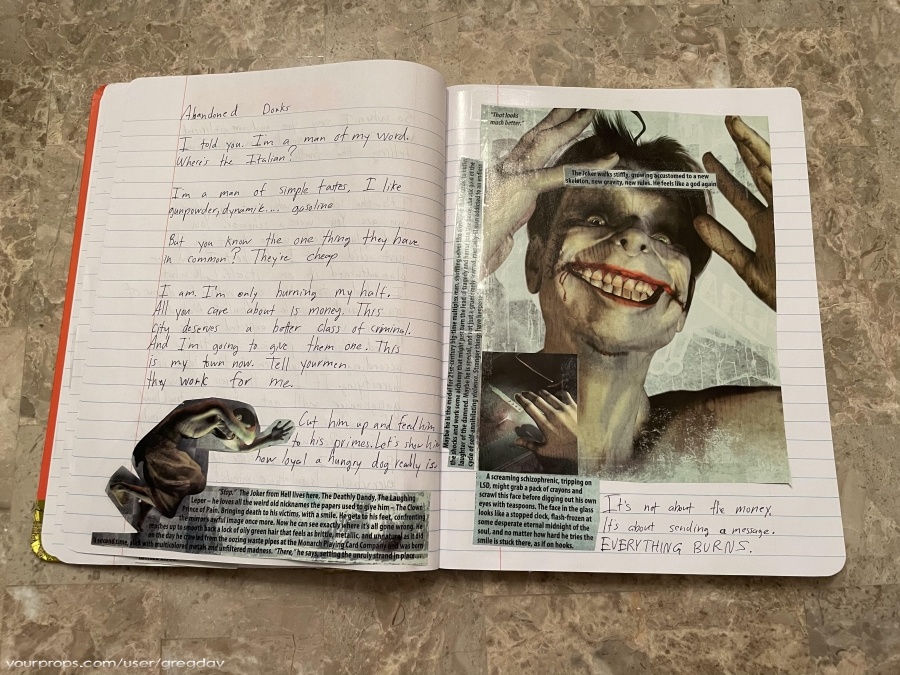 Abandoned Donks
I told you. I'm a man of my word.
Where's the Italian?
I'm a man of simple tastes, I like
gunpowder, dynamik.... gasoline
But you know the one thing they have
in common? They're cheap
I am. I'm only burning my half.
All you care about is money. This
city deserves a better class of criminal.
And I'm going to give them one. This
is my town now. Tell yourmen
they work for me.
Cut him up and feed him
to his primes. Let's show him
how loyal a hungry dog really is.
"Stop." The Joker from Hell lives here, The Deathly Dandy, The Laughing
Leper – he loves all the weird old nicknames the papers used to give him – The Clown
Prince of Pain. Bringing death to his victims, with a smile. He gets to his feet, confronting
the mirrors awful image once more. Now he can see exactly where it's all gone wrong. He
reaches up to smooth back a lock of oily green hair that feels as brittle, metallic, and unnatural as it did
on the day he crawled from the oozing waste pipes at the Monarch Playing Card Company and was born
a second time, pied with multicolored metals and unfiltered madness. "There," he says, setting the unruly strand in place
"That looks
much better."
The Joker walks stiffly, growing accustomed to a new
skeleton, new gravity, new rules. He feels like a god again
Maybe he is the model for 21st-century big-time multiplex man, shuffling
the shocks and work some alchemy that might just turn the lead of tragedy and horror into
laughter of the damned. Maybe he is special, and not just a gruesomely scarred, mentally-ill man addicted to an endless
cycle of self-annihilating violence. Stranger things have happened
A screaming schizophrenic, tripping on
LSD, might grab a pack of crayons and
scrawl this face before digging out his own
eyes with teaspoons. The face in the glass
looks like a stopped clock, flash-frozen at
some desperate eternal midnight of the
soul, and no matter how hard he tries the
smile is stuck there, as if on hooks.
It's not about the money.
It's about sending a message.
EVERYTHING BURNS.
yourprops.com/user/greaday